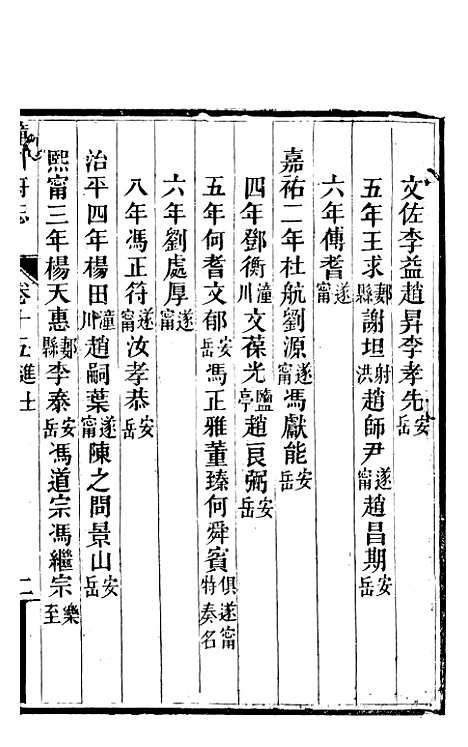 文佐李益趙昇李孝先安岳
五年王求郪縣謝坦射洪趙師尹遂甯趙昌期安岳
六年傅耆遂甯
嘉祐二年杜航劉源遂甯馮獻能安岳
四年鄧衡潼川文葆光鹽亭趙良弼安岳
五年何耆文郁安岳馮正雅董臻何舜賓俱遂甯特奏名
六年劉處厚遂甯
八年馮正符遂甯汝孝恭安岳
治平四年楊田潼川趙嗣葉遂甯陳之問景山安岳
熙甯三年楊天惠郪縣李泰安岳馮道宗馮繼宗樂至
川府志
卷十五進士
二